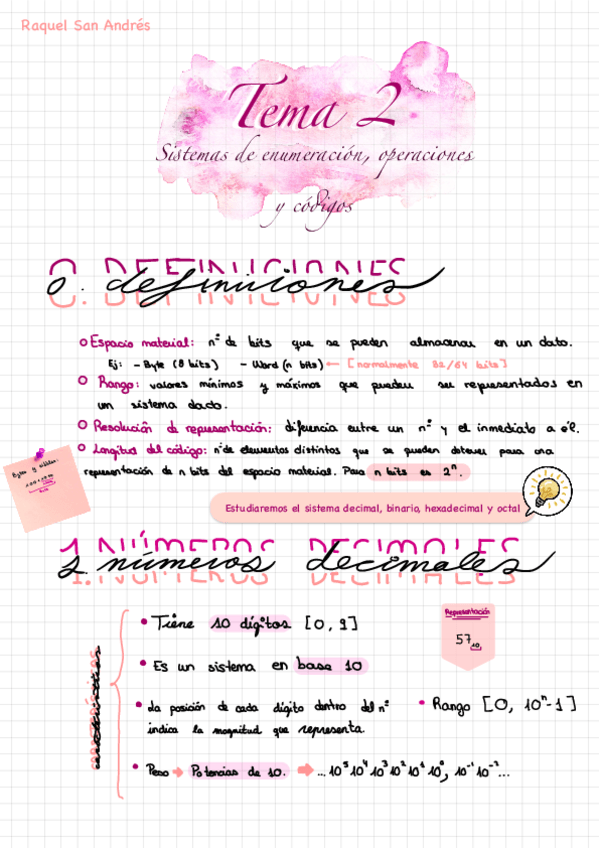 Raquel San Andrés
Tema 2
Sistemas de enumeración, operaciones
y códigos
0. DEFINICIONES
0. definiciones
Espacio material: nº de bits que se pueden almacenar en un dato.
Ej: - Byte (8 bits) - Word (n bits) ← [normalmente 32/64 bits]
Rango: valores mínimos y máximos que pueden ser representados en
un sistema dado.
Resolución de representación: diferencia entre un nº y el inmediato a él.
Longitud del código: nº de elementos distintos que se pueden obtener para una
representación de n bits del espacio material. Para n bits es 2ⁿ.
Estudiaremos el sistema decimal, binario, hexadecimal y octal
1. NÚMEROS DECIMALES
1. números decimales
Tiene 10 dígitos [0, 9]
Representación
57₁₀
Es un sistema en base 10
La posición de cada dígito dentro del nº
indica la magnitud que representa.
Rango [0, 10ⁿ-1]
Peso → Potencias de 10. → ...10⁵ 10⁴ 10³ 10² 10¹ 10⁰, 10⁻¹ 10⁻²...